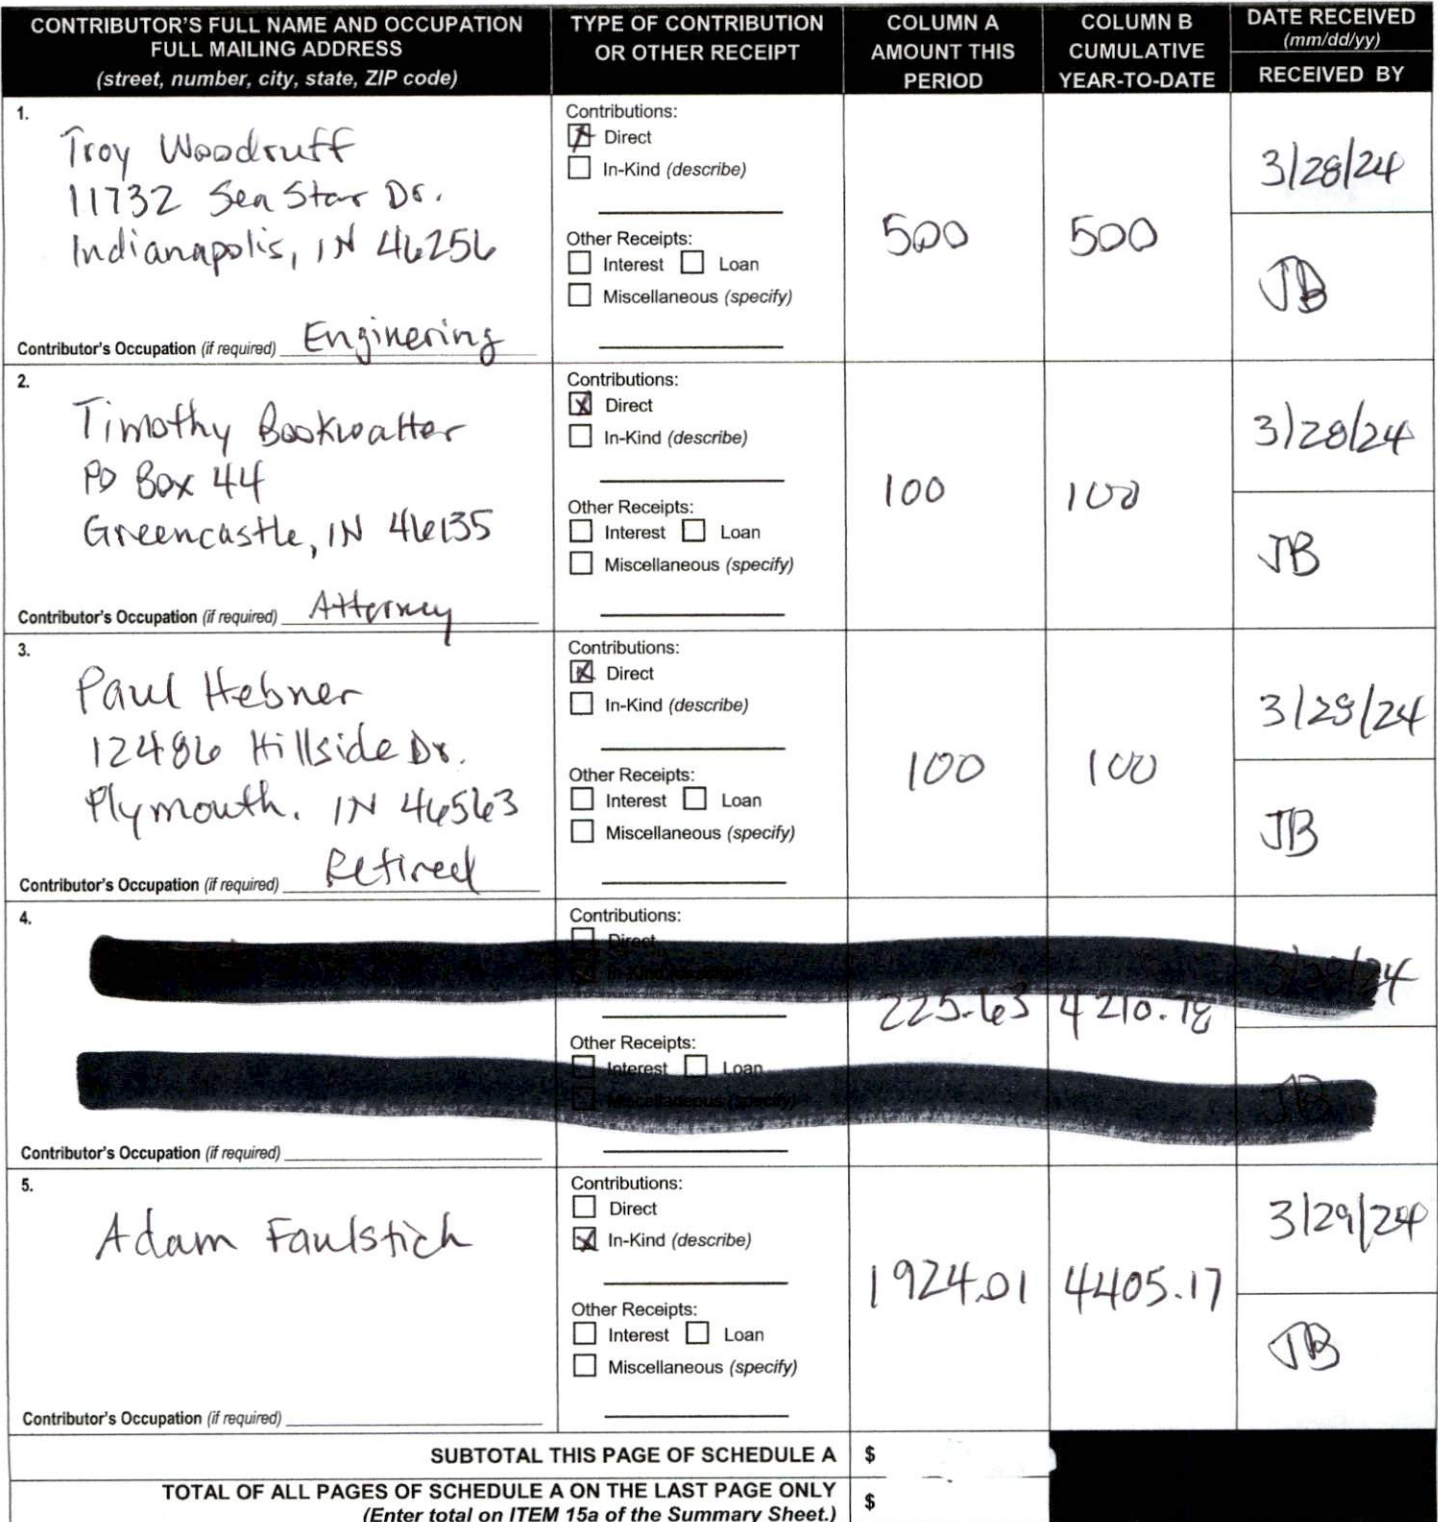 CONTRIBUTOR'S FULL NAME AND OCCUPATION
FULL MAILING ADDRESS
(street, number, city, state, ZIP code)
TYPE OF CONTRIBUTION
OR OTHER RECEIPT
COLUMN A
AMOUNT THIS
PERIOD
COLUMN B
CUMULATIVE
YEAR-TO-DATE
DATE RECEIVED
(mm/dd/yy)
RECEIVED BY
1.
Troy Woodruff
11732 Sea Star Dr.
Indianapolis, IN 46256
Contributor's Occupation (if required) Enginering
Contributions:
Direct
In-Kind (describe)
Other Receipts:
Interest Loan
Miscellaneous (specify)
500
500
3/28/24
JB
2.
Timothy Bookwalter
PO Box 44
Greencastle, IN 46135
Contributor's Occupation (if required) Attorney
Contributions:
Direct
In-Kind (describe)
Other Receipts:
Interest Loan
Miscellaneous (specify)
100
100
3/28/24
JB
3.
Paul Hebner
12486 Hillside Dr.
Plymouth. IN 46563
Retired
Contributor's Occupation (if required)
Contributions:
Direct
In-Kind (describe)
Other Receipts:
Interest Loan
Miscellaneous (specify)
100
100
3/28/24
JB
4.
Contributor's Occupation (if required)
Contributions:
Direct
In-Kind (describe)
Other Receipts:
Interest Loan
Miscellaneous (specify)
225.63
4210.78
JB
5.
Adam Faulstich
Contributor's Occupation (if required)
Contributions:
Direct
In-Kind (describe)
Other Receipts:
Interest Loan
Miscellaneous (specify)
1924.01
4405.17
3/29/24
JB
SUBTOTAL THIS PAGE OF SCHEDULE A $
TOTAL OF ALL PAGES OF SCHEDULE A ON THE LAST PAGE ONLY
(Enter total on ITEM 15a of the Summary Sheet.) $